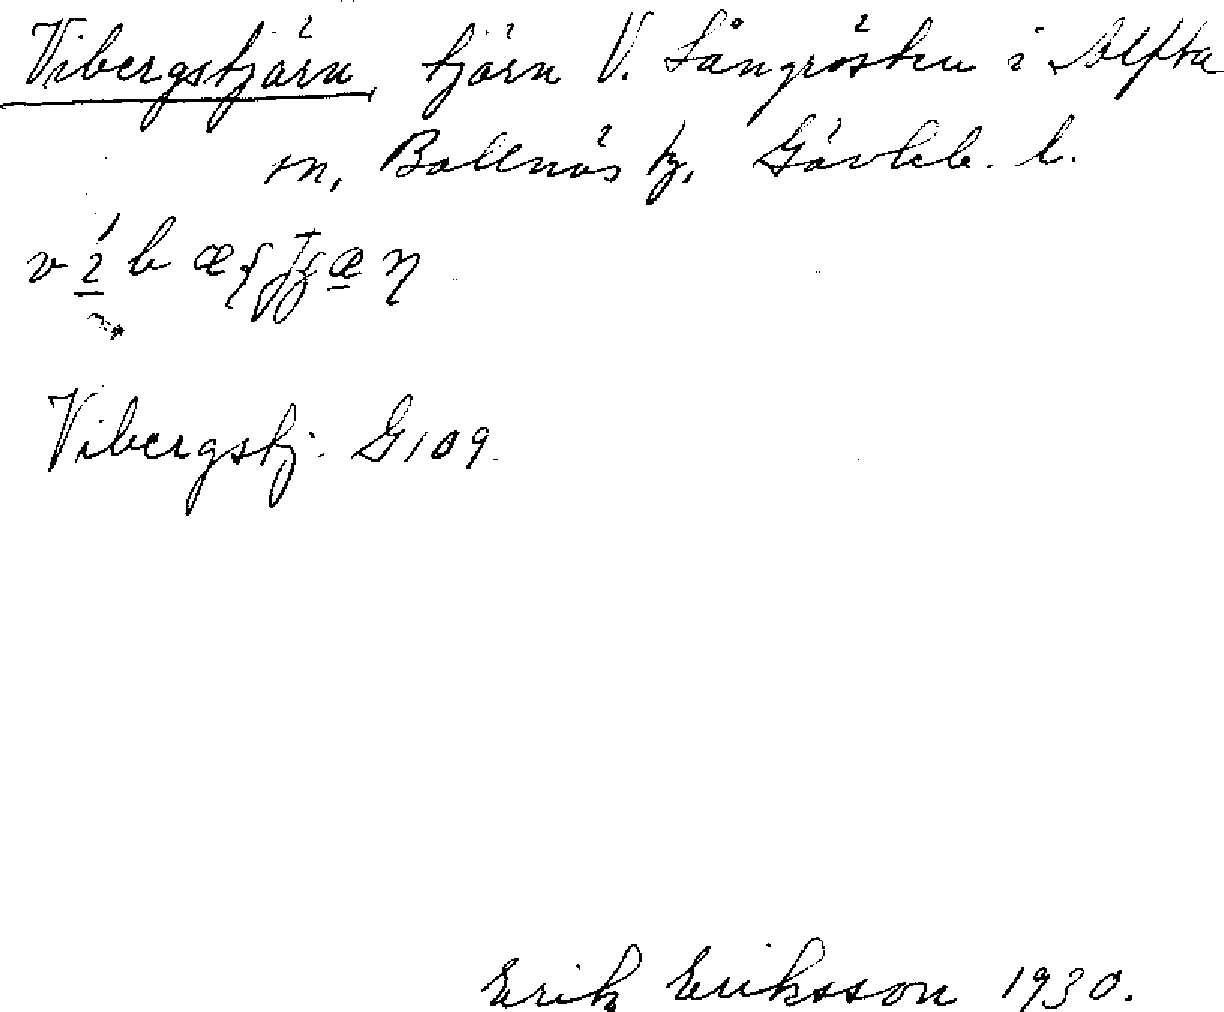 Vibergstjärn tjärn V. Långrösten i Alfta
sn, Bollnäs tg, Gävleb. l.
Vibergstj. G109.
Erik Eriksson 1930.